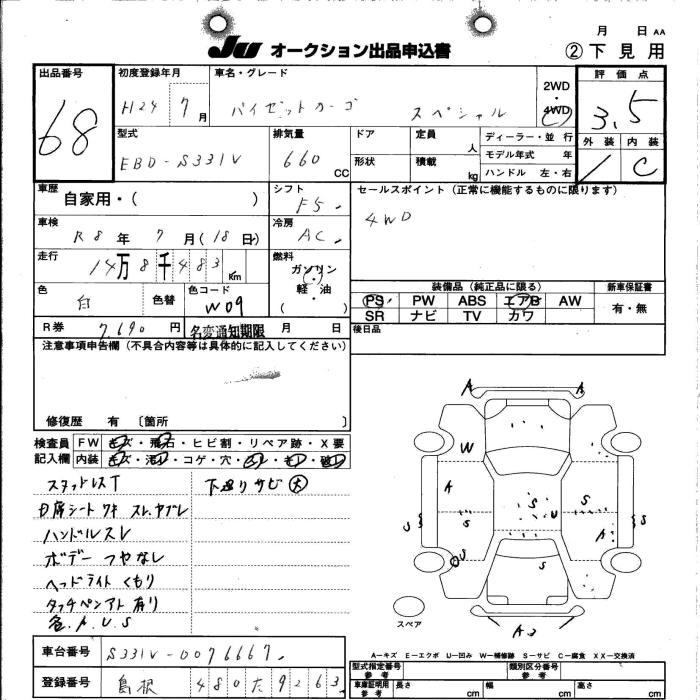 月 日 AA
JU オークション出品申込書
②下見用
出品番号 初度登録年月 車名・グレード 評価点
68 H24 7月 ハイゼットカーゴ スペシャル 2WD・4WD 3.5
型式 排気量 ドア 定員 人 ディーラー・並行 外装 内装
EBD-S331V 660 CC 形状 積載 kg モデル年式 年 C
ハンドル 左・右
車歴 シフト セールスポイント(正常に機能するものに限ります)
自家用・( ) F5 4WD
車検 冷房
R8年 7月(18日) AC
走行 燃料
14万8千483 Km ガソリン・軽油 ( )
色 白 色替 色コード W09
装備品(純正品に限る) 新車保証書
PS PW ABS エアB AW 有・無
SR ナビ TV カワ
R券 7,690円 名変通知期限 月 日 後日品
注意事項申告欄(不具合内容等は具体的に記入してください)
修復歴 有 〔箇所 〕
検査員 FW キズ・飛石・ヒビ割・リペア跡・X要
記入欄 内装
スタットレスT 下廻りサビ大
D席シート ワキ スレ、ヤブレ
ハンドルスレ
ボデー つやなし
ヘッドライト くもり
タッチペンアト 有り
各.A.U.S
A
A
W
A
S
S
U
S
S
S
A
S
U
S
スペア
A3
A-キズ E-エクボ U-凹み W-補修跡 S-サビ C-腐食 XX-交換済
車台番号 S331V-0076667
登録番号 島根 480 た 9263
型式指定番号 参考 類別区分番号 参考
車庫証明用 参考 長さ cm 幅 cm 高さ cm